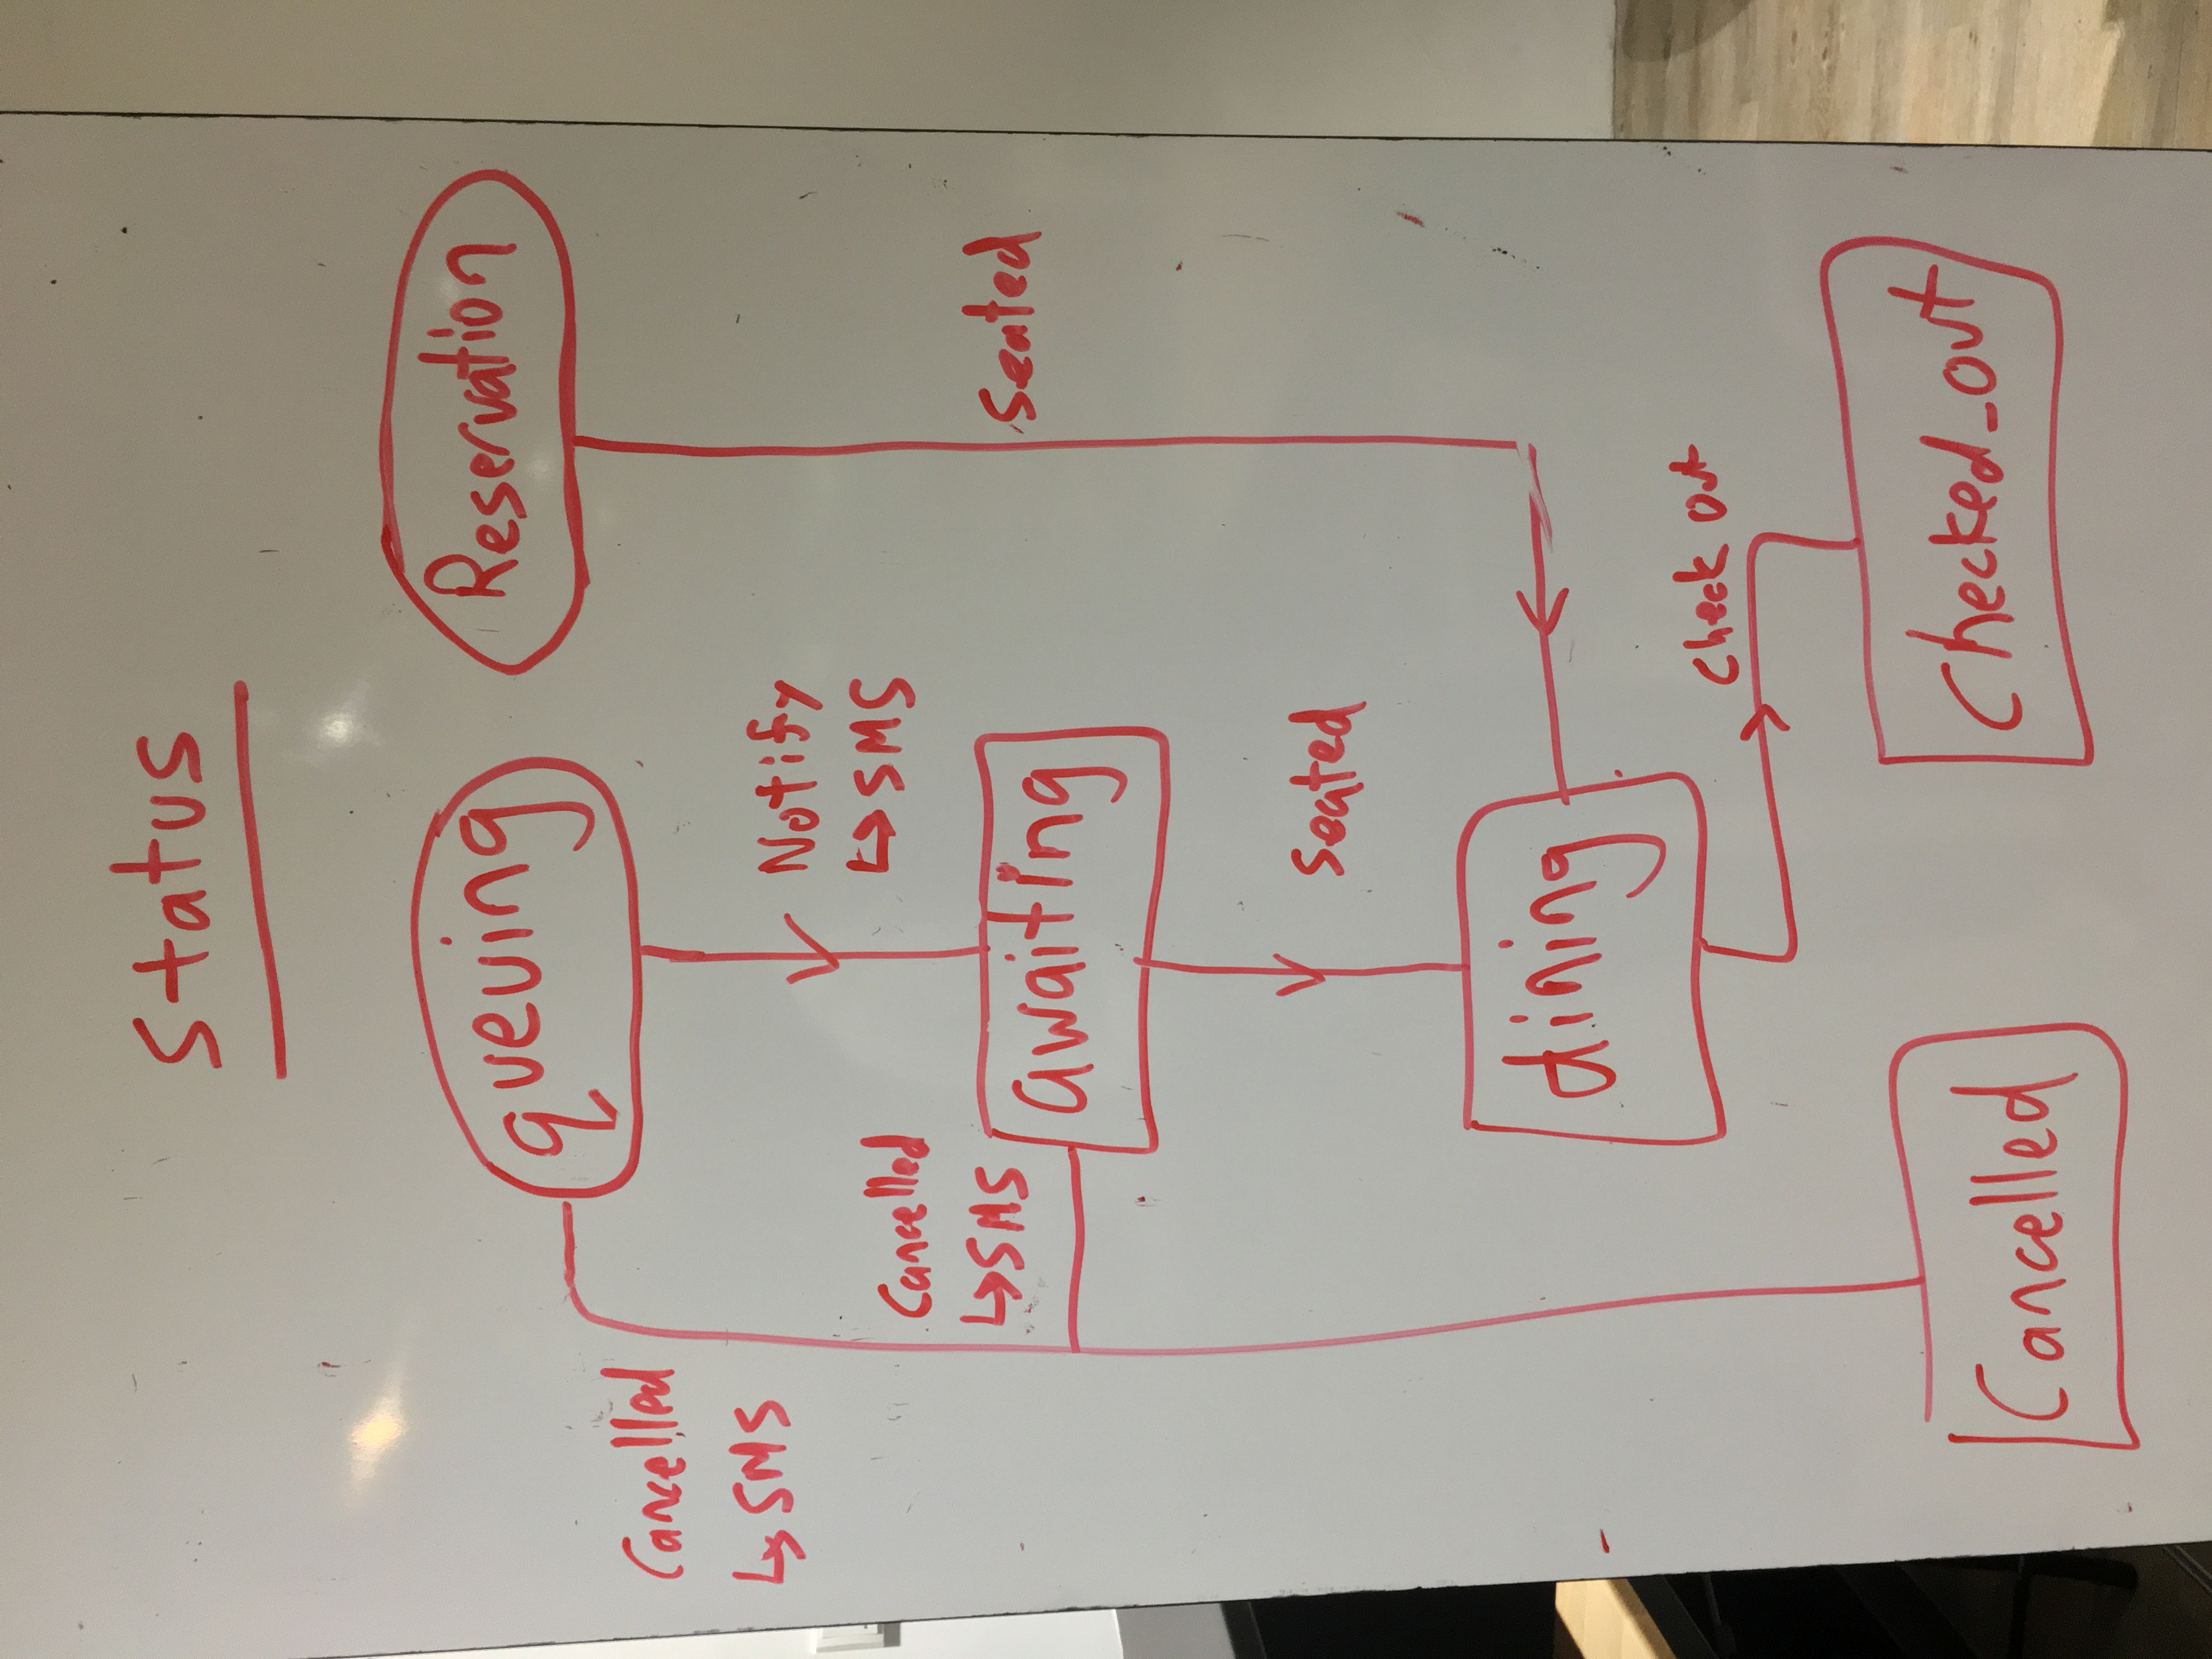 Status
queuing
Reservation
Cancelled
↳ SMS
Notify
↳ SMS
Cancelled
↳ SMS
awaiting
Seated
Seated
dining
Check out
Cancelled
Checked_out